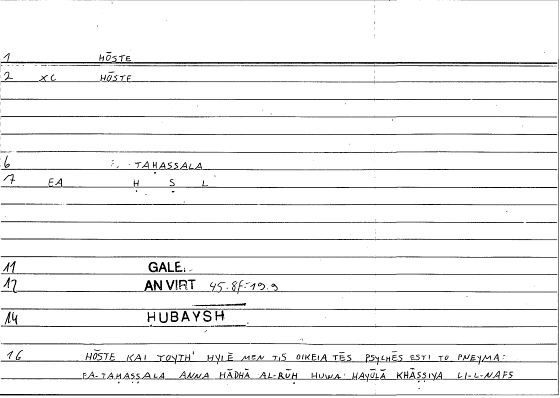 1 HŌSTE
2 XC HŌSTE
6 TAḤAṢṢALA
7 EA Ḥ Ṣ L
11 GALE.
12 AN VIRT 45.8f-19.9
14 ḤUBAYSH
16 HŌSTE KAI TOYTH' HYLĒ MEN TIS OIKEIA TĒS PSYCHĒS ESTI TO PNEYMA:
FA-TAḤAṢṢALA ANNA HĀDHĀ AL-RŪḤ HUWA HAYŪLĀ KHĀṢṢIYA LI-L-NAFS